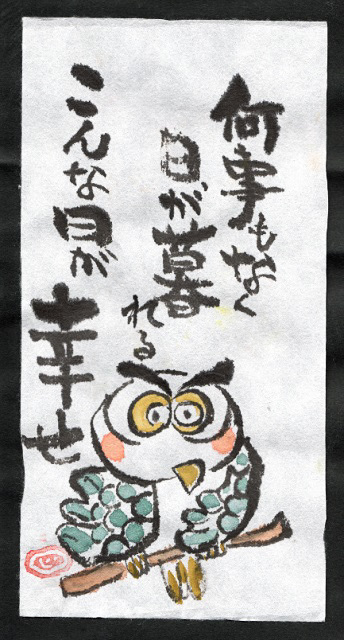 何事もなく
日が暮れる
こんな日が
幸せ